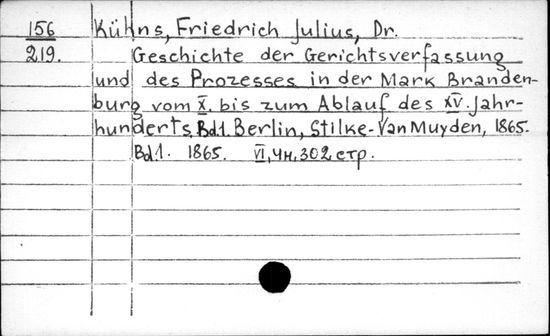 156 Kühns, Friedrich Julius, Dr.
219. Geschichte der Gerichtsverfassung
und des Prozesses in der Mark Branden-
burg vom X. bis zum Ablauf des XV. Jahr-
hunderts, Bd.1. Berlin, Stilke-Van Muyden, 1865.
Bd.1. 1865. VI, 4н, 302 стр.